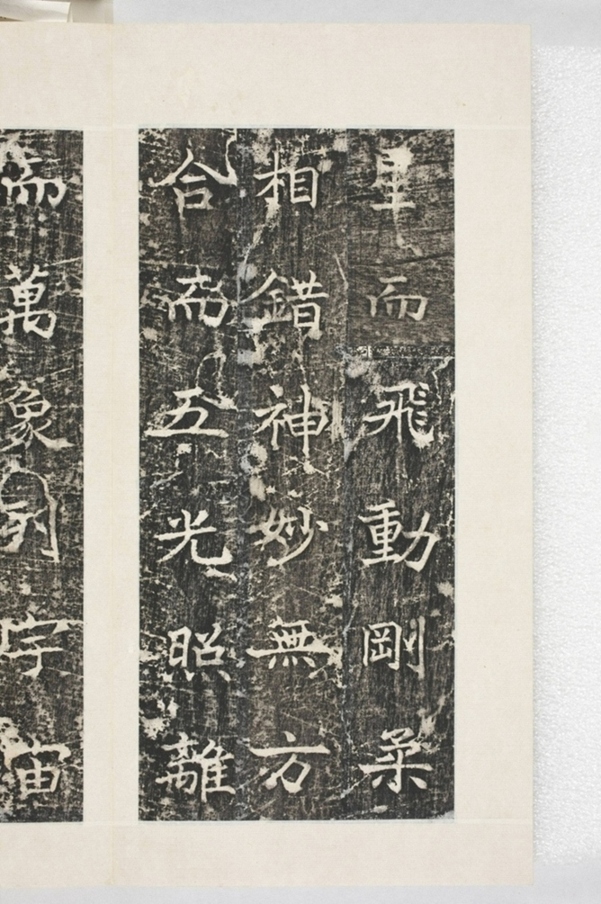 而飛動剛柔
相錯神妙無方
合而五光照離
而萬象列宇宙